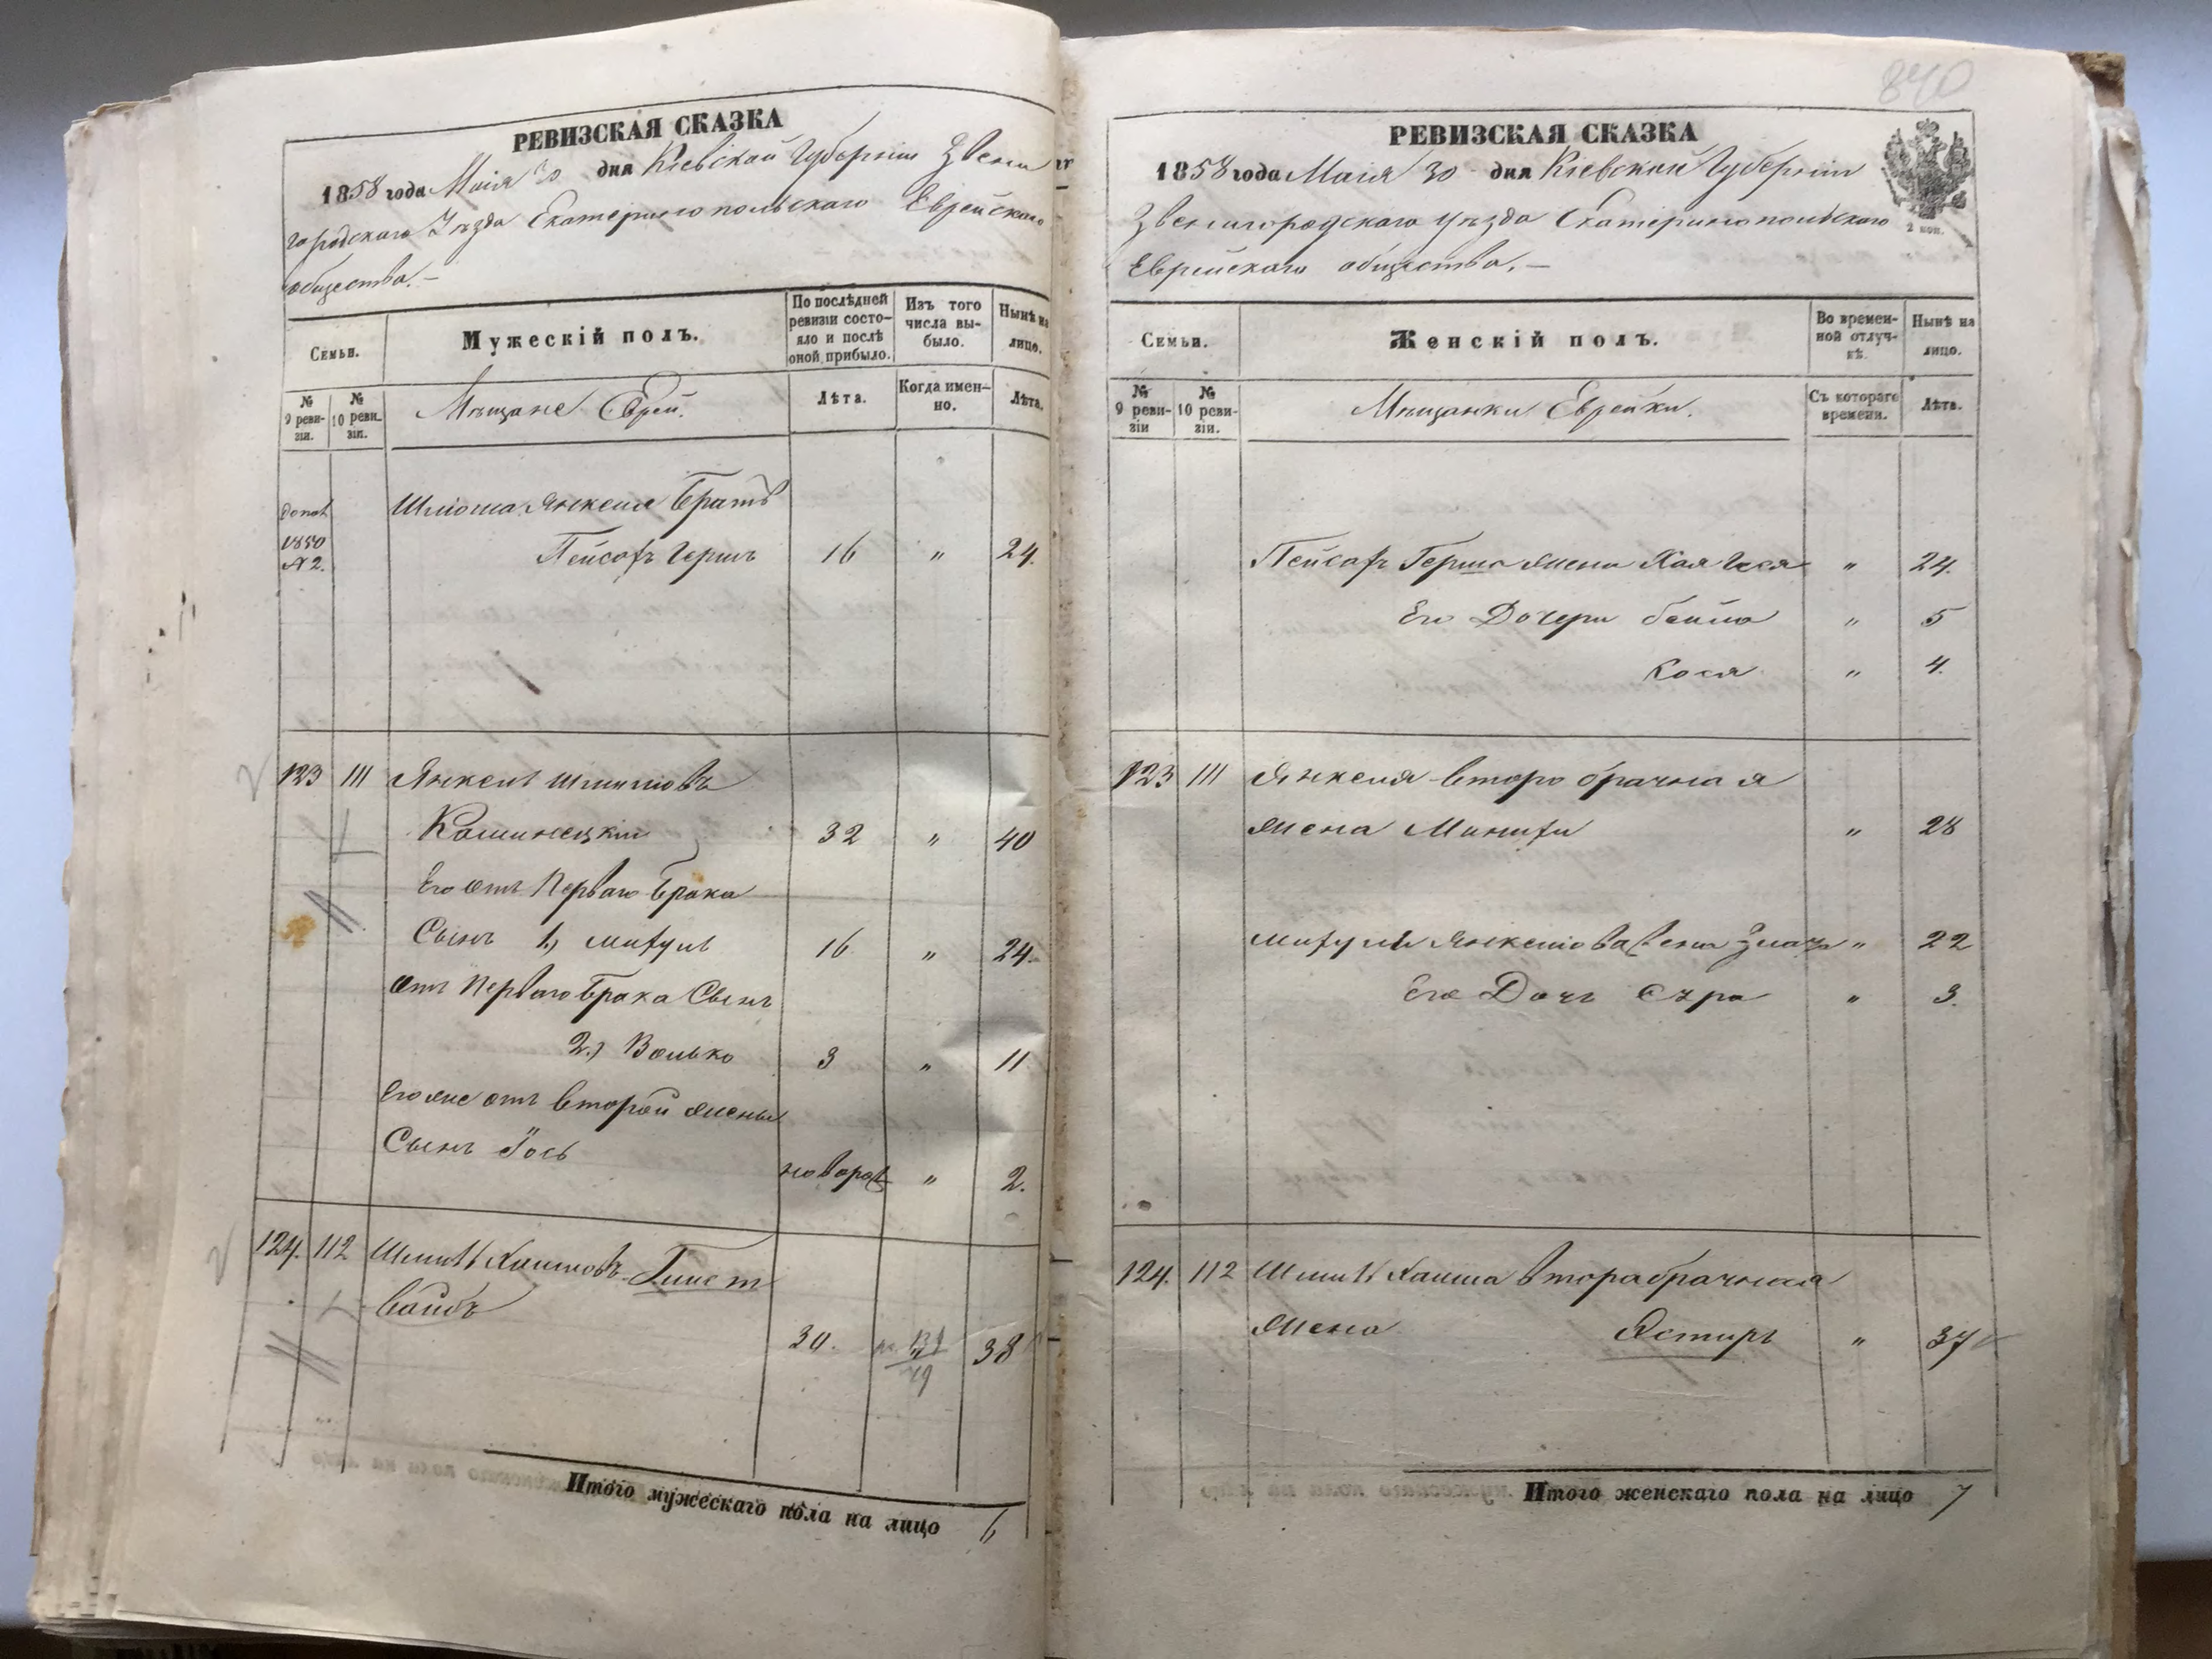 РЕВИЗСКАЯ СКАЗКА
1858 года Маія 30 дня Кіевской Губерніи Звени
городскаго Уѣзда Екатеринопольскаго Еврейскаго
общества. —
Семьи.
Мужескій полъ.
По послѣдней ревизіи состояло и послѣ оной прибыло.
Изъ того числа выбыло.
Нынѣ на лицо.
№ 9 ревизіи.
№ 10 ревизіи.
Мѣщане Евреи.
Лѣта.
Когда именно.
Лѣта.
1850 Шліома Янкеля Братъ
№ 2. Пейсахъ Гершъ 16 " 24.
123 111 Янкель Шліомовъ
Каминецкій 32 " 40
Его отъ Перваго Брака
Сынъ 1.) 16 " 24.
отъ Перваго Брака Сынъ
2.) Волько 3 " 11
Его же отъ второй жены
Сынъ Іось новорож " 2.
124. 112 Хаимовъ
30. 38
Итого мужескаго пола на лицо 6
840
РЕВИЗСКАЯ СКАЗКА
1858 года Маія 30 дня Кіевской Губерніи
Звенигородскаго уѣзда Екатеринопольскаго
2 коп.
Еврейскаго общества. —
Семьи.
Женскій полъ.
Во временной отлучкѣ.
Нынѣ на лицо.
№ 9 ревизіи
№ 10 ревизіи.
Мѣщанки Еврейки.
Съ котораго времени.
Лѣта.
Пейсахъ Герша жена Хая " 24.
Его Дочери Бейла " 5
Кося " 4.
123 111 Янкеля второбрачная
жена " 28
Янкелева жена " 22
Его Дочь Сура " 3.
124. 112 Хаима второбрачная
жена Эстеръ " 37
Итого женскаго пола на лицо 7